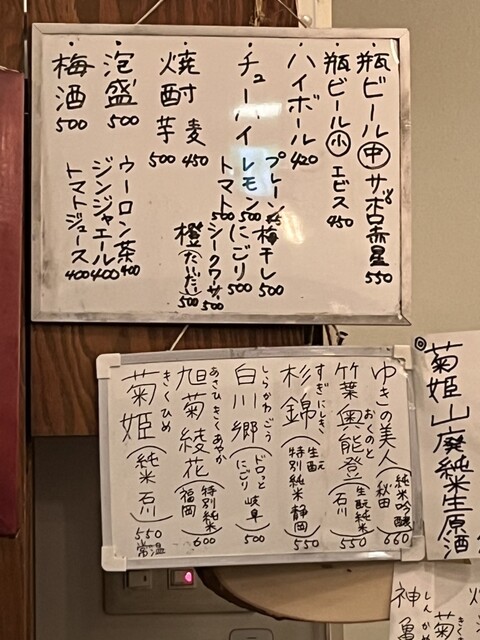 ・瓶ビール㊥サッポロ赤星 550
・瓶ビール(小)エビス 450
・ハイボール 420
・チューハイ プレーン
レモン 500
トマト 500
梅干し 500
にごり 500
シークヮーサー 500
橙(だいだい) 500
・焼酎 麦 450
芋 500
・泡盛 500
・梅酒 500
ウーロン茶 400
ジンジャエール 400
トマトジュース 400
ゆきの美人(純米吟醸 秋田) 660
竹葉 奥能登(生酛純米 石川) 550
おくのと
杉錦(生酛 特別純米 静岡) 550
すぎにしき
白川郷(ドロッとにごり 岐阜) 500
しらかわごう
旭菊 綾花(特別純米 福岡) 600
あさひきくあやか
菊姫(純米 石川) 550 常温
きくひめ
◎菊姫 山廃純米生原酒
神亀
しんかめ
菊